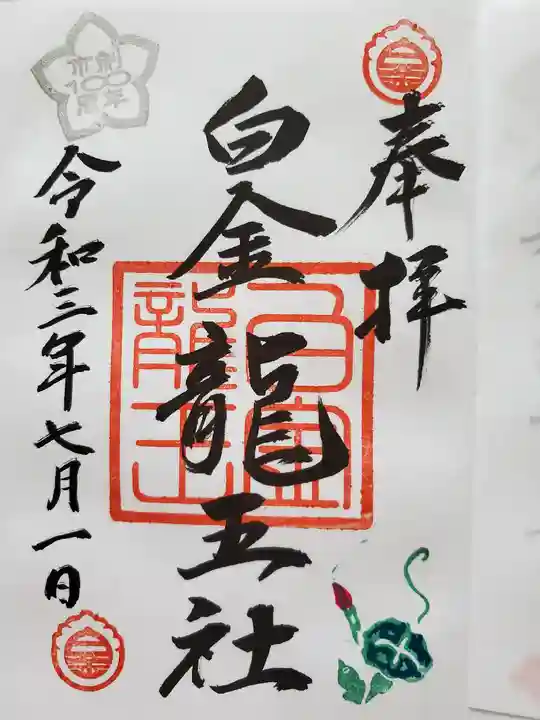 奉拝
白金龍王社
白金龍王
令和三年七月一日
創祀100周年